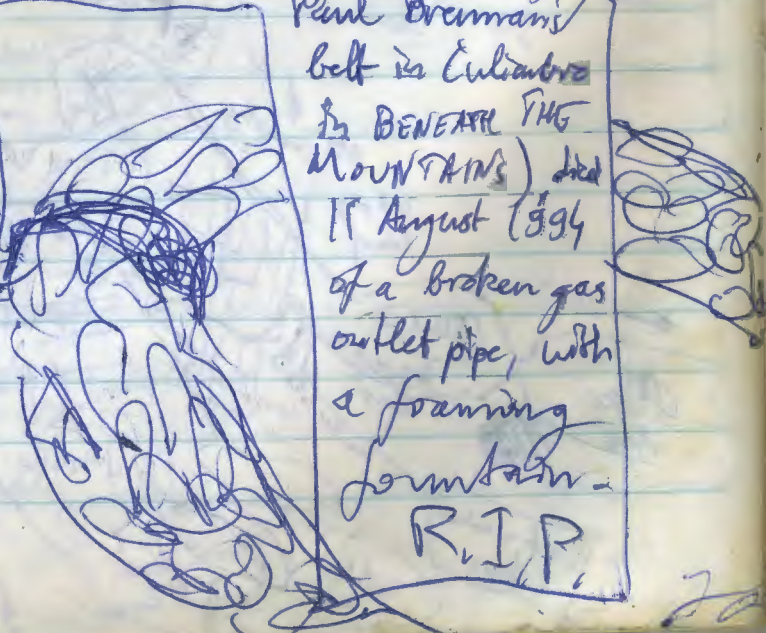 Paul Brennan's
belt in Culiembro
in BENEATH THE
MOUNTAINS) died
11 August 1994
of a broken gas
outlet pipe, with
a foaming
fountain.
R.I.P.